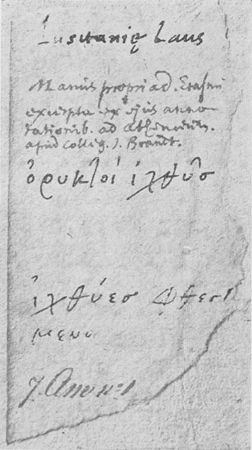 Lusitanię Laus
Manus propria d. Erasmi
excerpta ex ejus anno
tationib. ad Athenaeum.
apud colleg. J. Brandt.
ὀρυκτοὶ ἰχθῦς
ἰχθύες
μενο